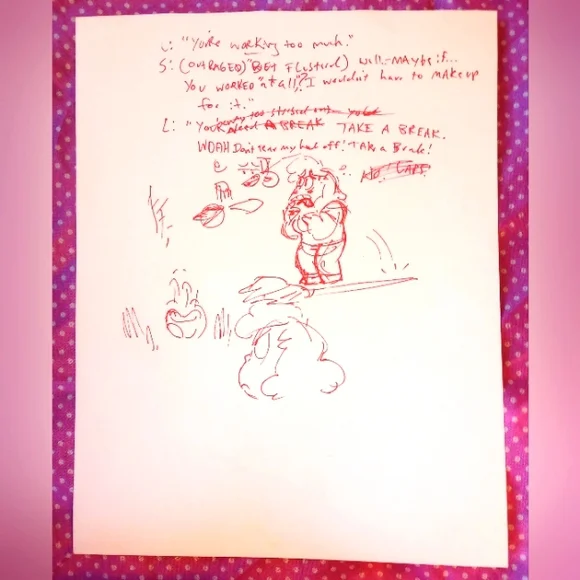 L: "You're working too much."
S: (OUTRAGED) "BET Flustered) Well-MAYbe if...
You WORKED "at all"? I wouldn't have to MAKE up
for it."
L: "YOUR Need A BREAK TAKE A BREAK.
WOAH Don't tear my head off! TAKE a Break!